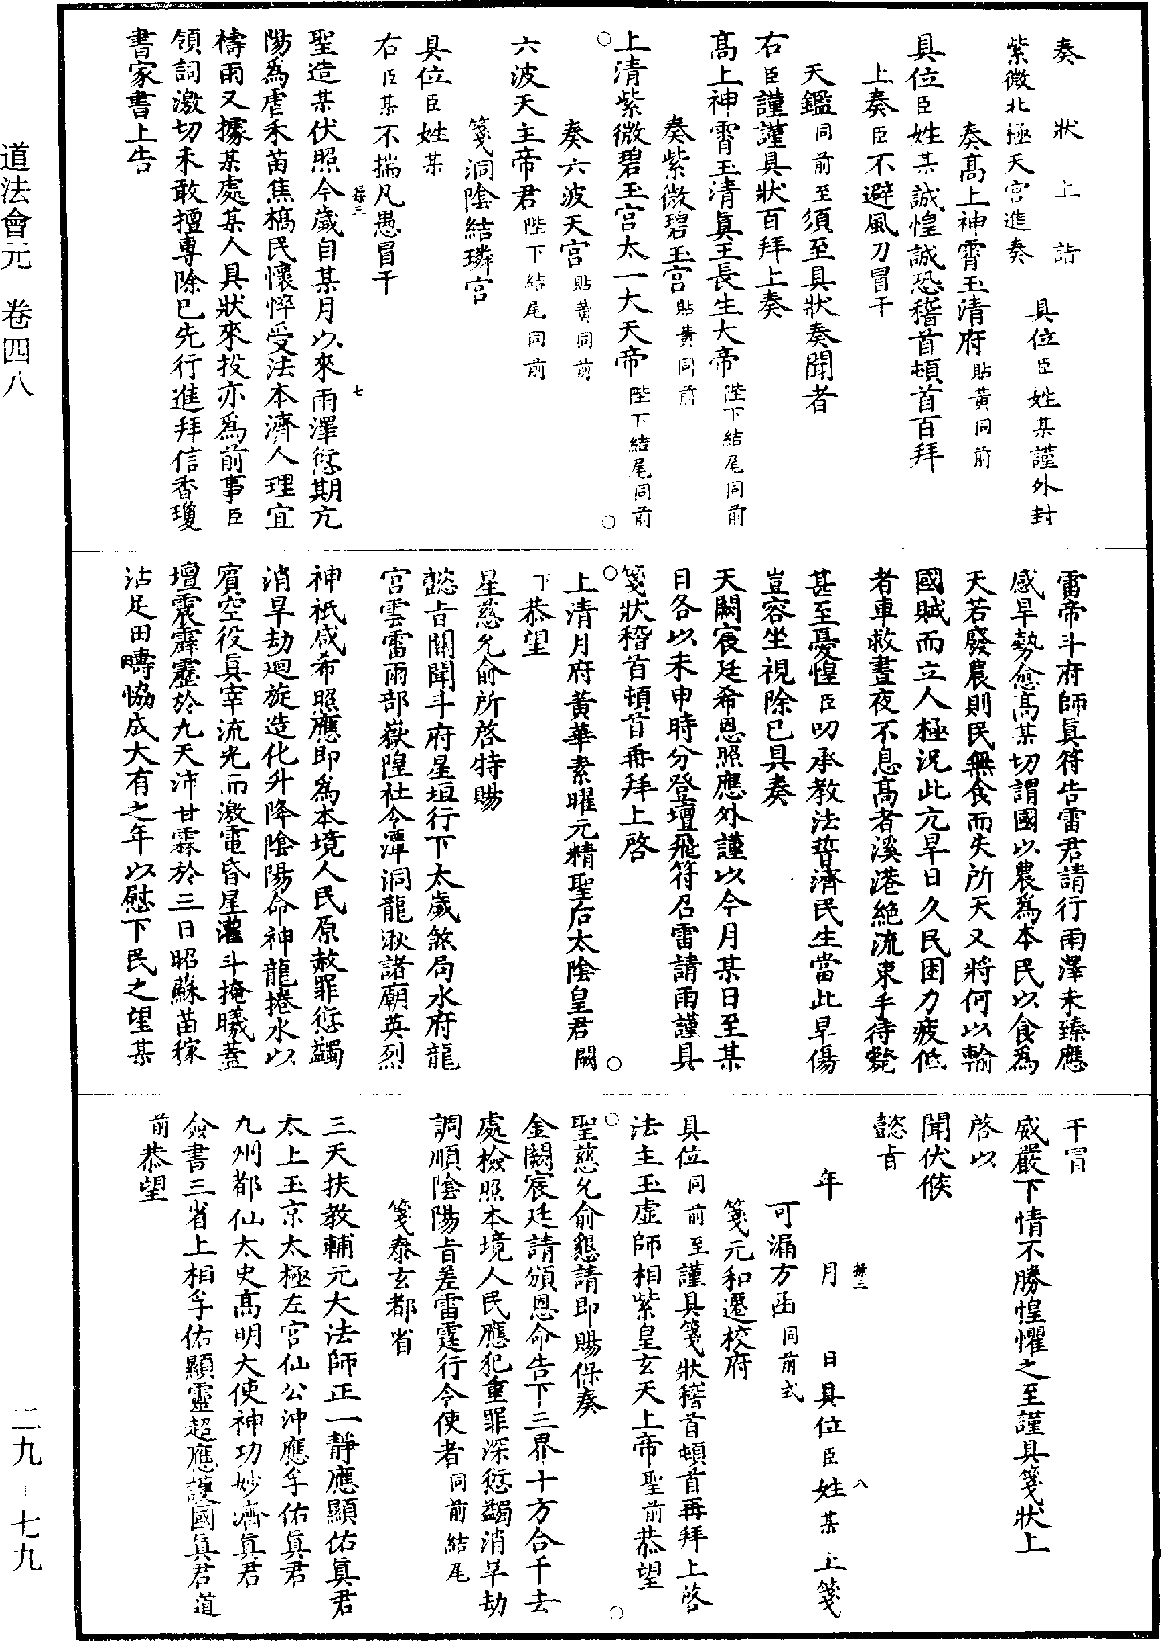 道法會元　卷四八
二九–七九
奏狀上詣
具位臣姓某謹外封
紫微北極天宮進奏
奏高上神霄玉清府貼黃同前
具位臣姓某誠惶誠恐稽首頓首百拜
上奏臣不避風刀冒干
天鑑同前至須至具狀奏聞者
右臣謹謹具狀百拜上奏
高上神霄玉清真王長生大帝陛下結尾同前
奏紫微碧玉宮貼黃同前
上清紫微碧玉宮太一大天帝陛下結尾同前
奏六波天宮貼黃同前
六波天主帝君陛下結尾同前
箋洞陰結璘宮
具位臣姓某
右臣某不揣凡愚冒干
聖造某伏照今歲自某月以來雨澤愆期亢
陽為虐禾苗焦槁民懷悴受法本濟人理宜
禱雨又據某處某人具狀來投亦為前事臣
領詞激切未敢擅專除已先行進拜信香瓊
書家書上告
七
雷帝斗府師真符告雷君請行雨澤未臻應
感旱勢愈高某切謂國以農為本民以食為
天若發農則民無食而失所天又將何以輸
國賦而立人極況此亢旱日久民困力疲低
者車救晝夜不息高者溪港絕流束手待斃
甚至憂惶臣叨承教法誓濟民生當此旱傷
豈容坐視除已具奏
天闕宸廷希恩照應外謹以今月某日至某
日各以未申時分登壇飛符召雷請雨謹具
箋狀稽首頓首再拜上啓
上清月府黃華素曜元精聖后太陰皇君闕
下恭望
星慈允俞所啓特賜
懿旨關聞斗府星垣行下太歲煞局水府龍
宮雲雷雨部嶽隍社令潭洞龍湫諸廟英烈
神祇咸希照應即為本境人民原赦罪愆蠲
消旱劫迴旋造化升降陰陽命神龍捲水以
賓空役真宰流光而激電昏星灌斗掩曦蓋
壇震霹靂於九天沛甘霖於三日昭蘇苗稼
沾足田疇恊成大有之年以慰下民之望某
干冒
威嚴下情不勝惶懼之至謹具箋狀上
啓以
聞伏候
懿旨
年　月　日具位臣姓某上箋
八
可漏方函同前式
箋元和遷校府
具位同前至謹具箋狀稽首頓首再拜上啓
法主玉虛師相紫皇玄天上帝聖前恭望
聖慈允俞懇請即賜保奏
金闕宸廷請頒恩命告下三界十方合干去
處檢照本境人民應犯重罪深愆蠲消旱劫
調順陰陽旨差雷霆行令使者同前結尾
箋泰玄都省
三天扶教輔元大法師正一靜應顯佑真君
太上玉京太極左官仙公沖應孚佑真君
九州都仙太史高明大使神功妙濟真君
僉書三省上相孚佑顯靈超應護國真君道
前恭望